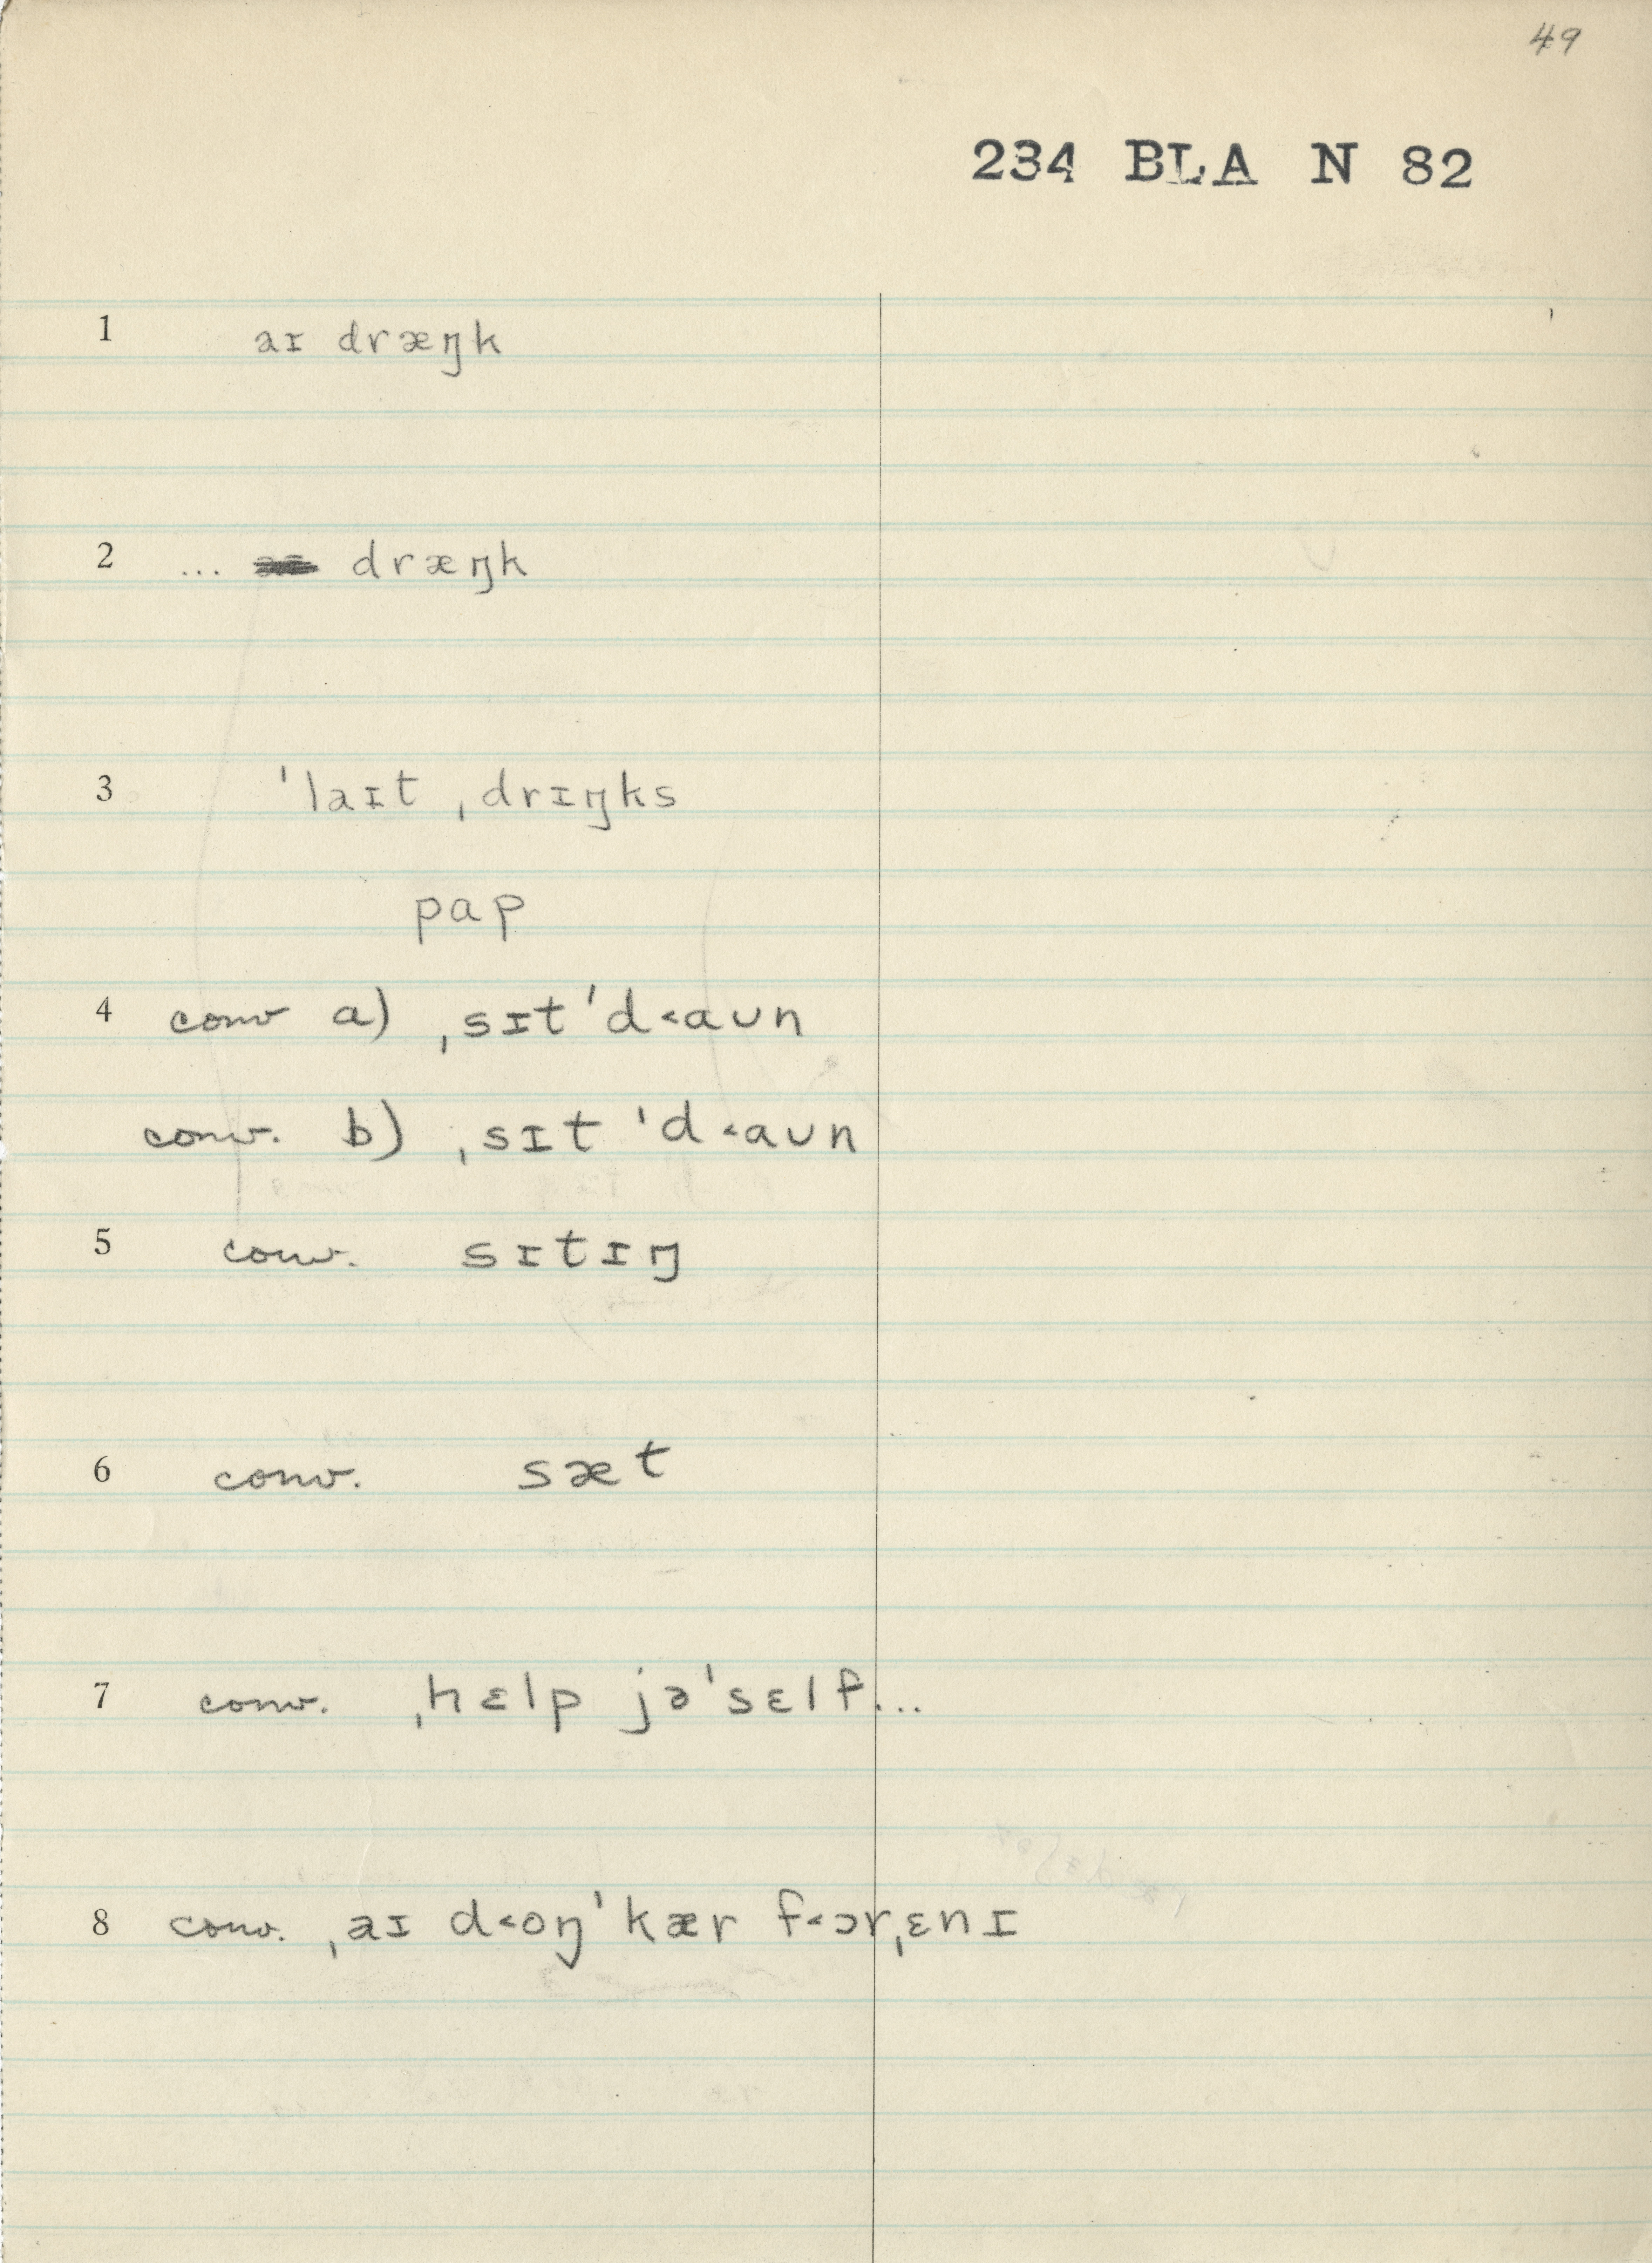 49
234 BLA N 82
1 aɪ dræŋk
2 ... dræŋk
3 ˈlaɪt ˌdrɪŋks
pap
4 conv a) ˌsɪt ˈd<aʊn
conv. b) ˌsɪt ˈd<aʊn
5 conv. sɪtɪŋ
6 conv. sæt
7 conv. ˌhɛlp jəˈsɛlf...
8 conv. ˌaɪ d<oŋ ˈkær f<ɔrˌɛnɪ